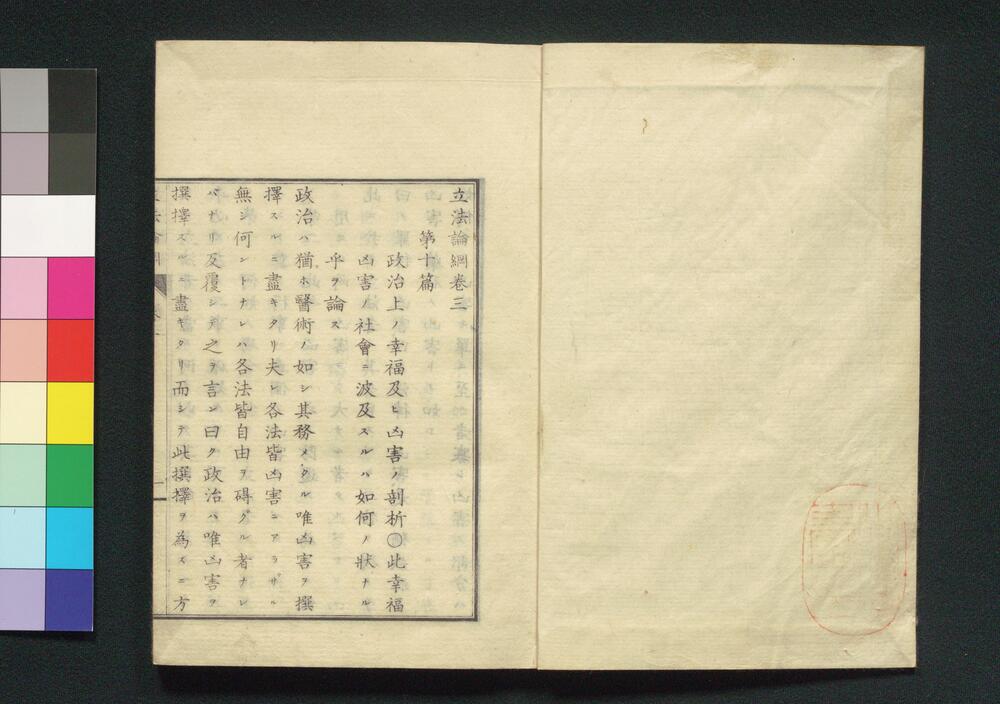 立法論綱卷三
第十篇
政治上ノ幸福及ヒ凶害ノ剖析〇此幸福
凶害ノ社會ニ波及スルハ如何ノ狀ナル
乎ヲ論ス
政治ハ猶ホ醫術ノ如シ其務メタル唯凶害ヲ撰
擇スルニ盡キタリ夫レ各法皆凶害ニアラザル
無シ何ントナレハ各法皆自由ヲ碍グル者ナレ
バナリ反覆シテ之ヲ言ン曰ク政治ハ唯凶害ヲ
撰擇スルニ盡キタリ而シテ此撰擇ヲ為スニ方